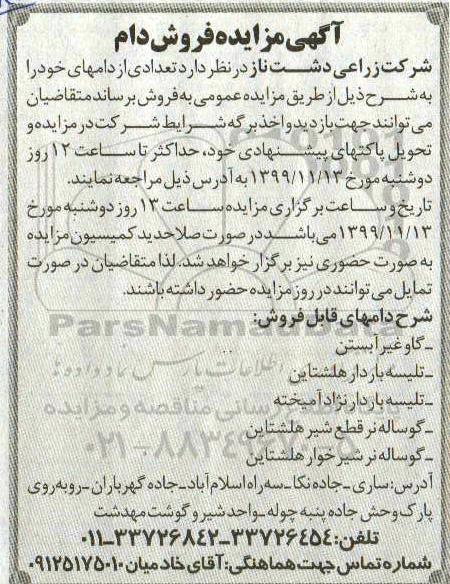 آگهی مزایده فروش دام
شرکت زراعی دشت ناز در نظر دارد تعدادی از دامهای خود را
به شرح ذیل از طریق مزایده عمومی به فروش برساند متقاضیان
می توانند جهت بازدید و اخذ برگه شرایط شرکت در مزایده و
تحویل پاکتهای پیشنهادی خود، حداکثر تا ساعت ۱۲ روز
دوشنبه مورخ ۱۳۹۹/۱۱/۱۳ به آدرس ذیل مراجعه نمایند.
تاریخ و ساعت برگزاری مزایده ساعت ۱۳ روز دوشنبه مورخ
۱۳۹۹/۱۱/۱۳ می باشد در صورت صلاحدید کمیسیون مزایده
به صورت حضوری نیز برگزار خواهد شد، لذا متقاضیان در صورت
تمایل می توانند در روز مزایده حضور داشته باشند.
شرح دامهای قابل فروش:
ـ گاو غیر آبستن
ـ تلیسه باردار هلشتاین
ـ تلیسه باردار نژاد آمیخته
ـ گوساله نر قطع شیر هلشتاین
ـ گوساله نر شیر خوار هلشتاین
آدرس: ساری ـ جاده نکا ـ سه راه اسلام آباد ـ جاده گهرباران ـ روبه روی
پارک وحش جاده پنبه چوله ـ واحد شیر و گوشت مهدشت
تلفن: ۳۳۷۲۶۴۵۴ ـ ۳۳۷۲۶۸۴۲ ـ ۰۱۱
شماره تماس جهت هماهنگی: آقای خادمیان ۰۹۱۲۵۱۷۵۰۱۰
ParsNamadData
پایگاه اطلاع رسانی مناقصه و مزایده